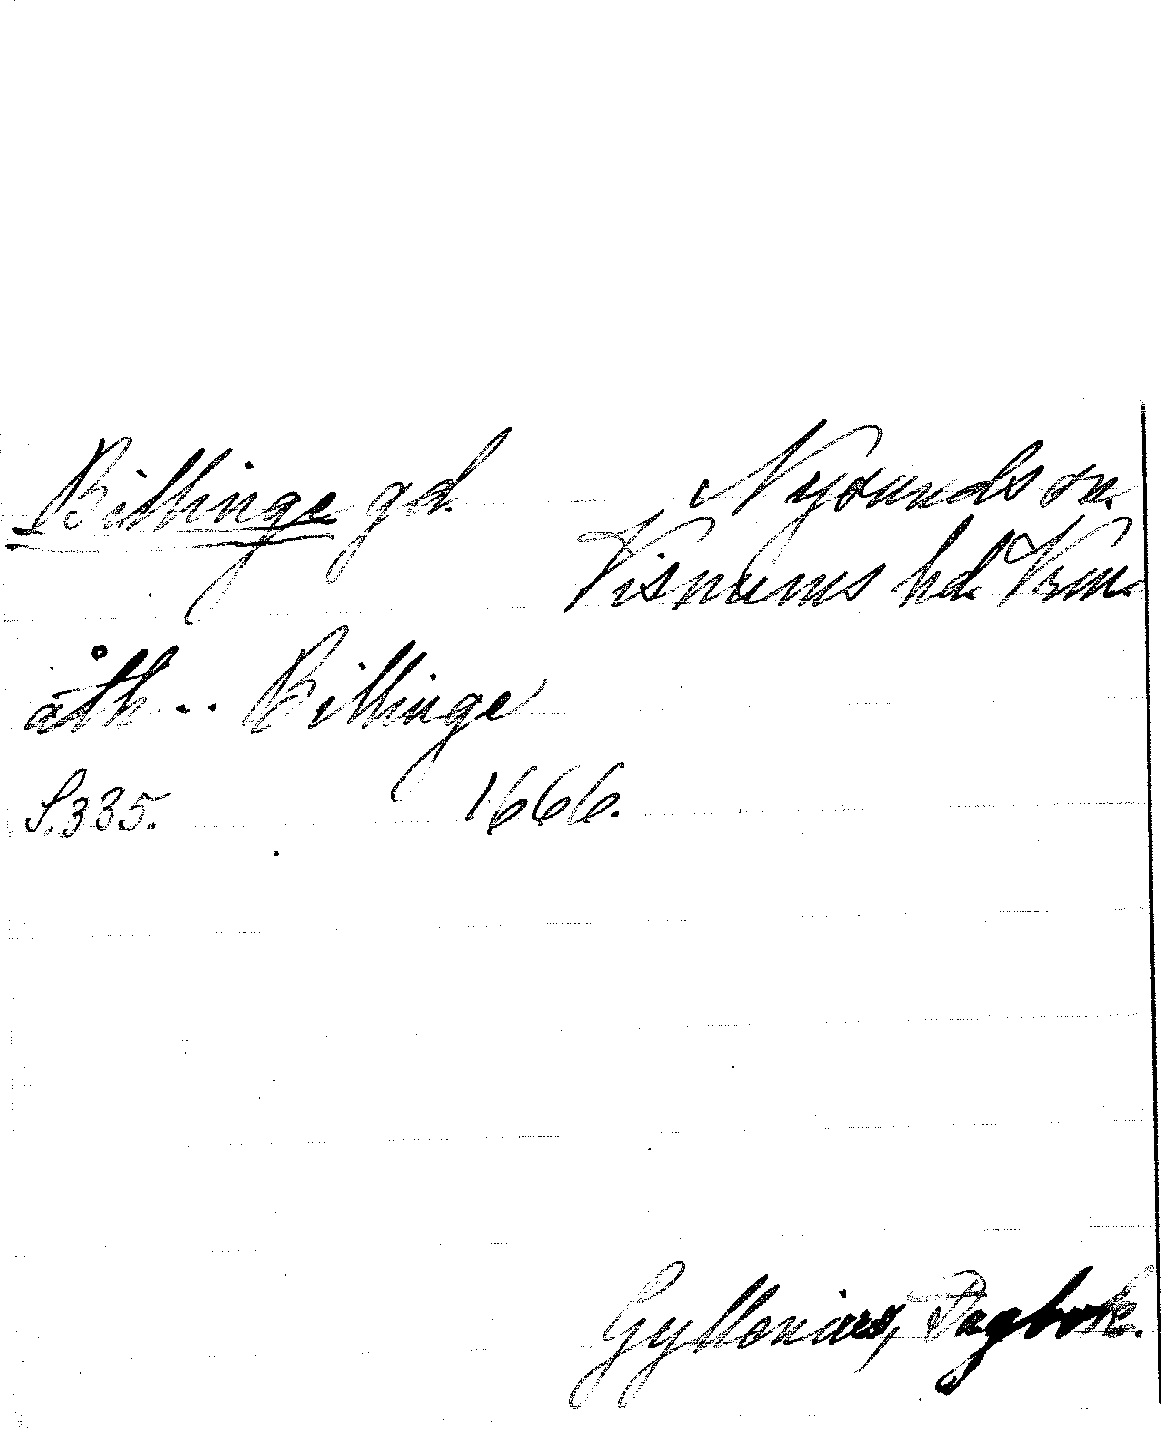 Billinge gd. Nysunds sn.
Visnums hd. Vrm.
åth .. Billinge
S. 335. 1666.
Gyllenius, Dagbok.